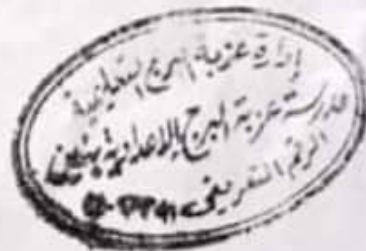 إدارة عزبة البرج التعليمية
مدرسة عزبة البرج الإعدادية بنين
الرقم التعريفى